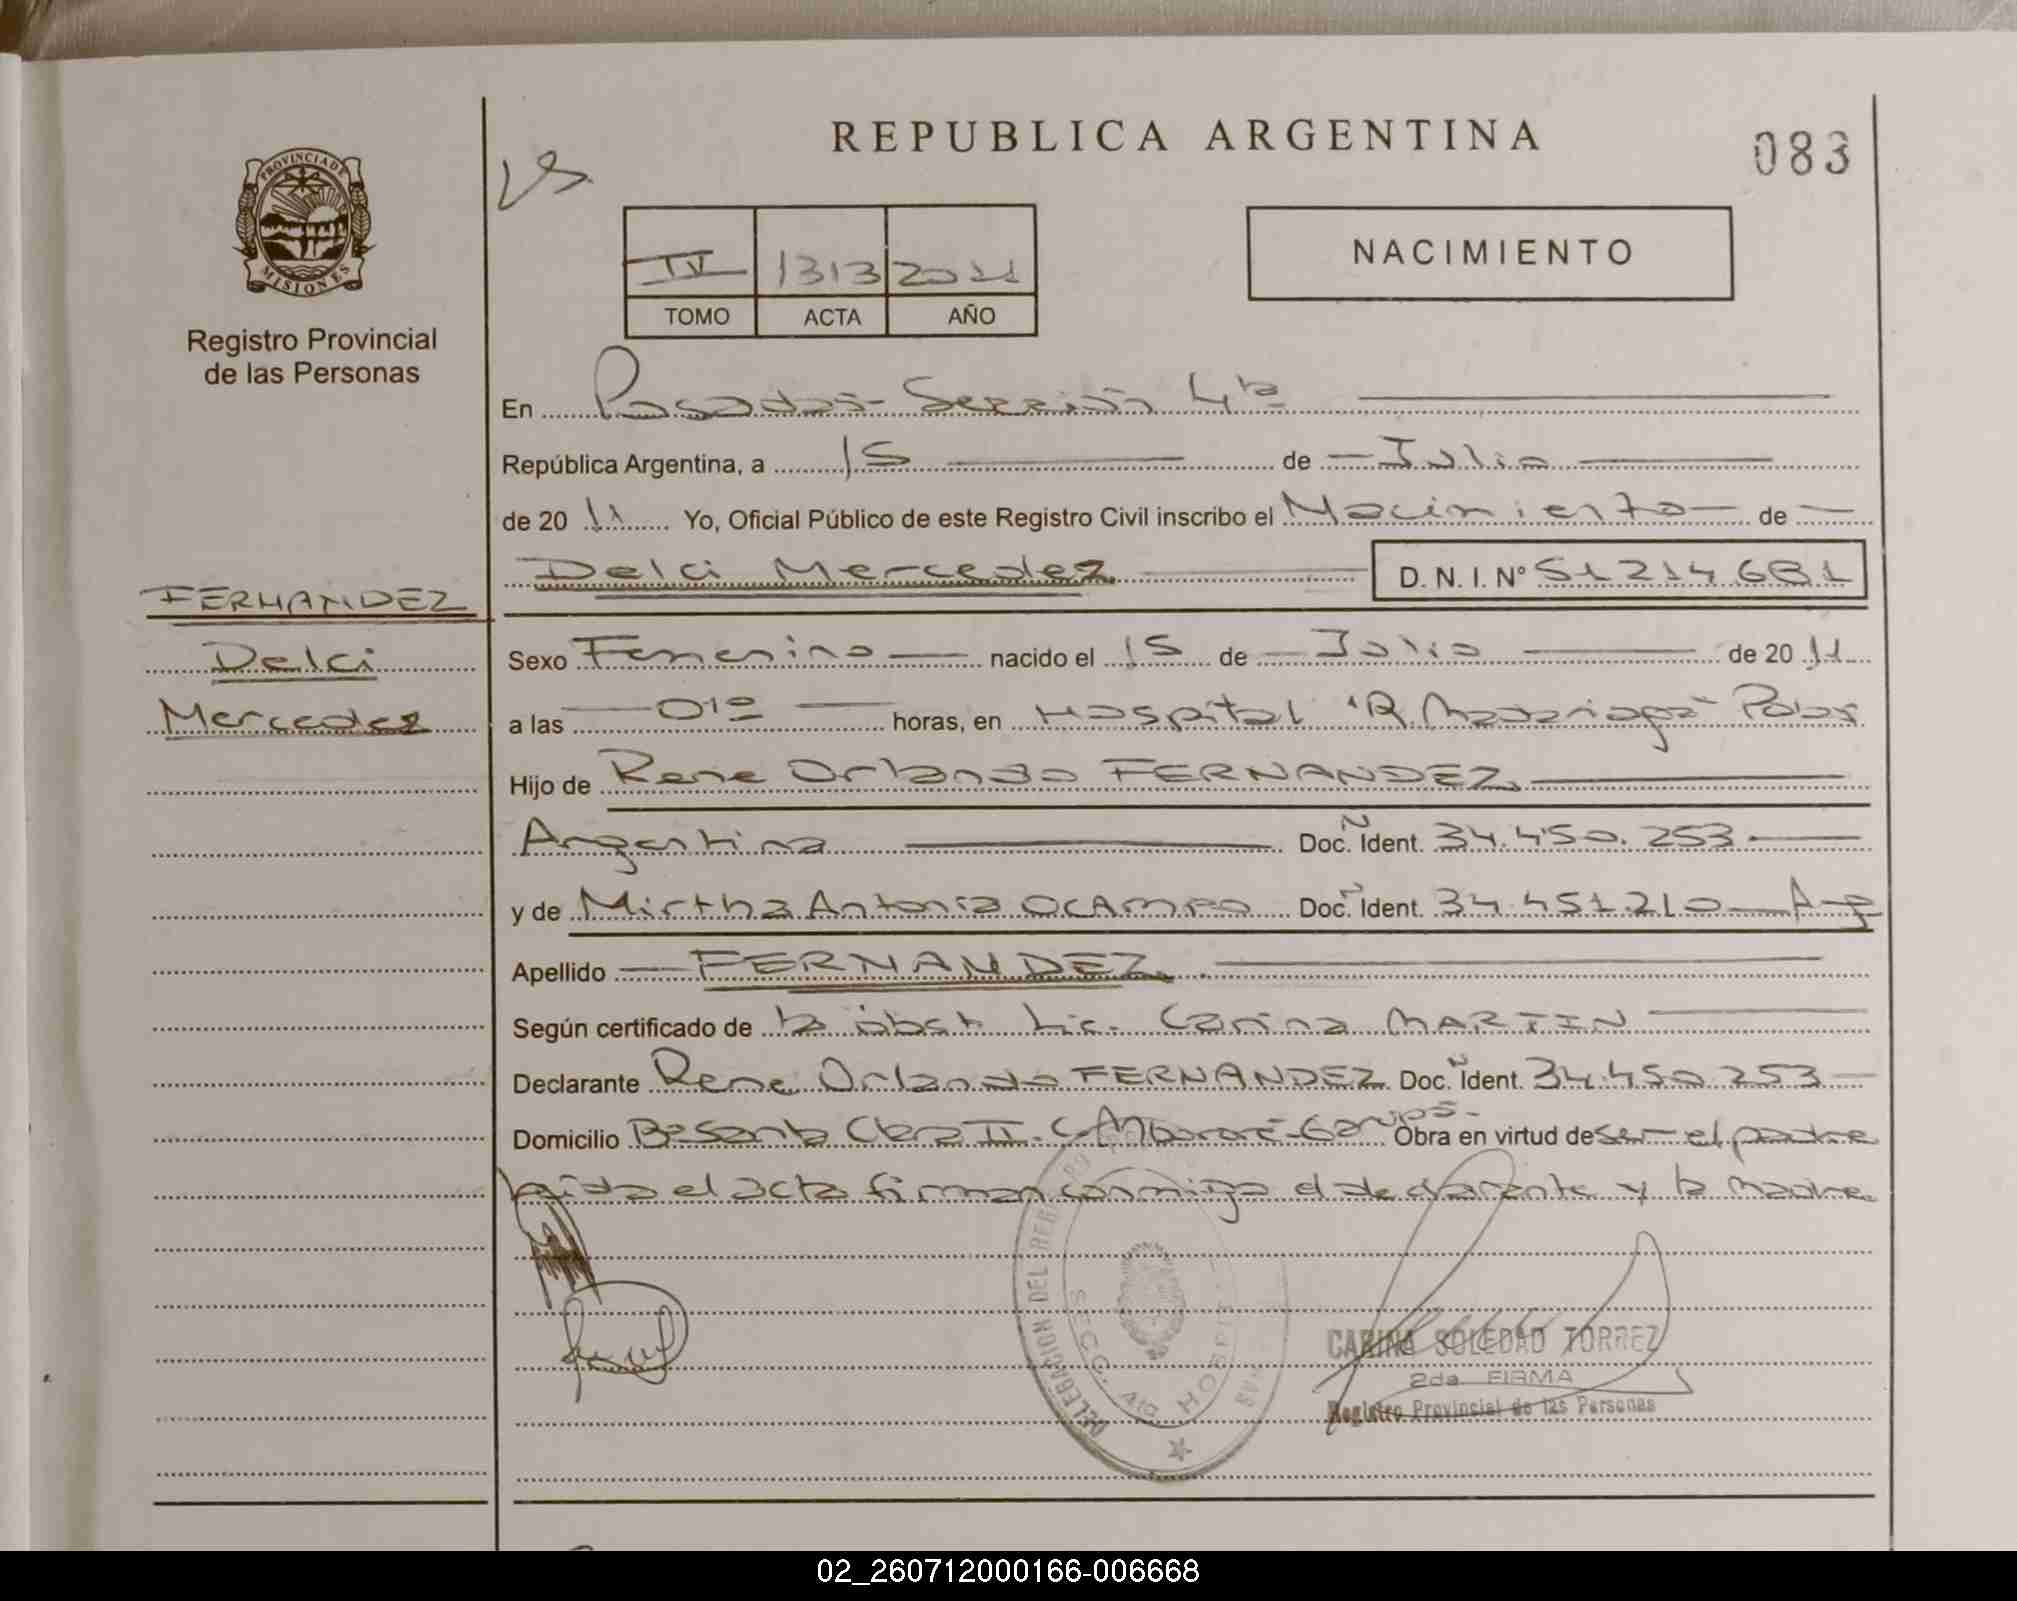 REPUBLICA ARGENTINA
083
PROVINCIA DE
MISIONES
Registro Provincial
de las Personas
IV 1313 2011
TOMO ACTA AÑO
NACIMIENTO
En Posadas - Sección 4ta
República Argentina, a 15 de Julio
de 20 11 Yo, Oficial Público de este Registro Civil inscribo el Nacimiento de
Delci Mercedez D. N. I. Nº 51214681
FERNANDEZ
Delci
Mercedez
Sexo Femenino nacido el 15 de Julio de 20 11
a las 01º horas, en Hospital "R. Madariaga" Pdas
Hijo de Rene Orlando FERNANDEZ
Argentina Doc. Ñ Ident. 34.450.253
y de Mirtha Antonia OCAMPO Doc. Ident. 34.451.210 Arg
Apellido FERNANDEZ
Según certificado de la obst. Lic. Carina MARTIN
Declarante Rene Orlando FERNANDEZ Doc. Ñ Ident. 34.450.253
Domicilio Bº Santa Clara II Obra en virtud de ser el padre
leida el acta firman conmigo el declarante y la madre
DELEGACION DEL REG
SECC. HOSPIT
CARINA SOLEDAD TORREZ
2da FIRMA
Registro Provincial de las Personas
02_260712000166-006668